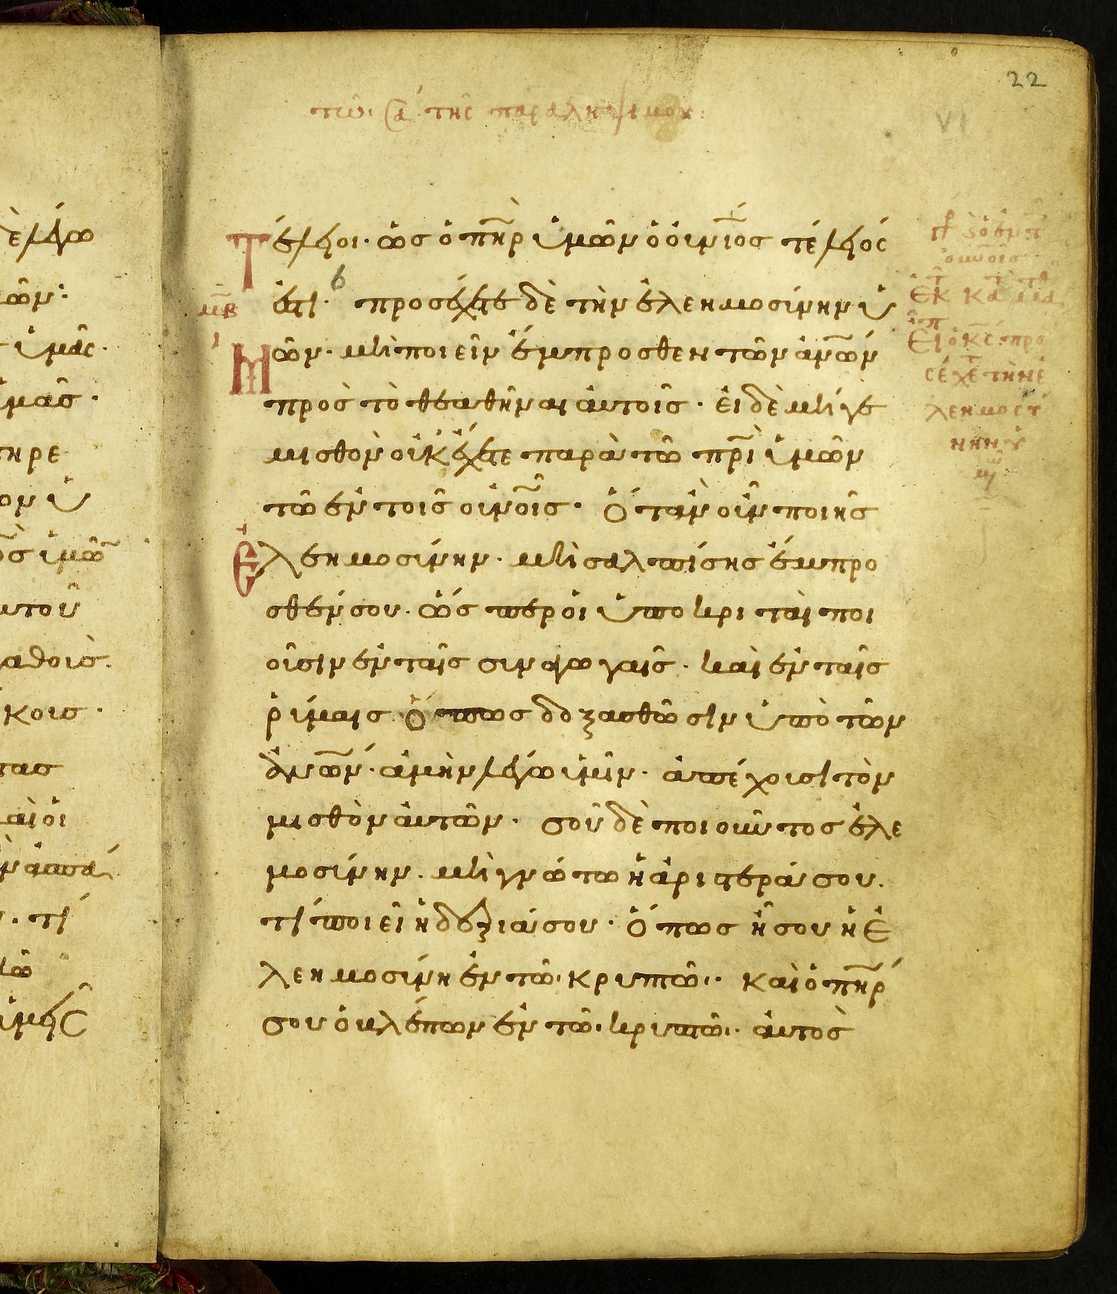 22
VI
τω σα της
τέλειοι· ὡς ὁ πη̅ρ ὑμῶν ὁ οὐν̅ιος τέλειός
6
ἐστι· προσέχετε δὲ τὴν ἐλεημοσύνην ὑ
μῶν· μὴ ποιεῖν ἔμπροσθεν τῶν ἀν̅ων
πρὸς τὸ θεαθῆναι αὐτοῖς· εἰ δὲ μήγε
μισθὸν οὐκ ἔχετε παρὰ τῶ πρ̅ι ὑμῶν
τῶ ἐν τοῖς οὐν̅οις· Ὅταν οὖν ποιῆς
ἐλεημοσύνην· μὴ σαλπίσης ἔμπρο
σθέν σου· ὥσπερ οἱ ὑποκριταὶ ποι
οῦσιν ἐν ταῖς συναγωγαῖς· καὶ ἐν ταῖς
ῥύμαις Ὅπως δοξασθῶσιν ὑπὸ τῶν
ἀν̅ων· ἀμὴν λέγω ὑμῖν· ἀπέχουσι τὸν
μισθὸν αὐτῶν· σοῦ δὲ ποιοῦντος ἐλε
μοσύνην· μὴ γνώτω ἡ ἀριστερά σου·
τί ποιεῖ ἡ δεξιά σου· Ὅπως ἦ σου ἡ ἐ
λεημοσύνη ἐν τῶ κρυπτῶ· καὶ ὁ πη̅ρ
σου ὁ βλέπων ἐν τῶ κρυπτῶ· αὐτὸς
ἐκ κα
προ
σέχετε τὴν ἐ
λεημοσύ
νην ὑ